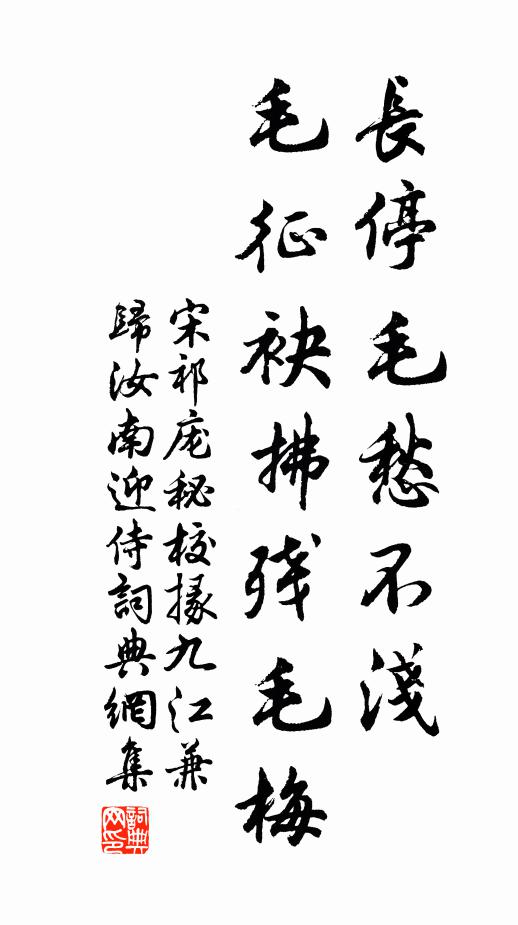 長停毛愁不淺
毛征袂拂残毛梅
宋祁庞秘校掾九江兼
歸汝南迎侍詞典網集
詞典网印